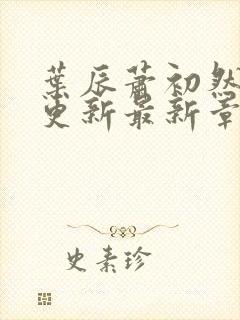 葉辰蕭初然
更新最新章
史素珍